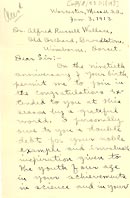 Worcester, Mass. U.S.
Jan. 3, 1913.
Dr. Alfred Russel Wallace,
Old Orchard, Broadstone,
Wimborne, Dorset.
Dear Sir:-
On the ninetieth
anniversary of your birth
permit me to join in
the congratulations ex-
tended to you at this
season by a grateful
world. I personally
owe to you a double
debt for your noble
example and
inspiration given to
the youth of our age
in your achievements
in science and in your